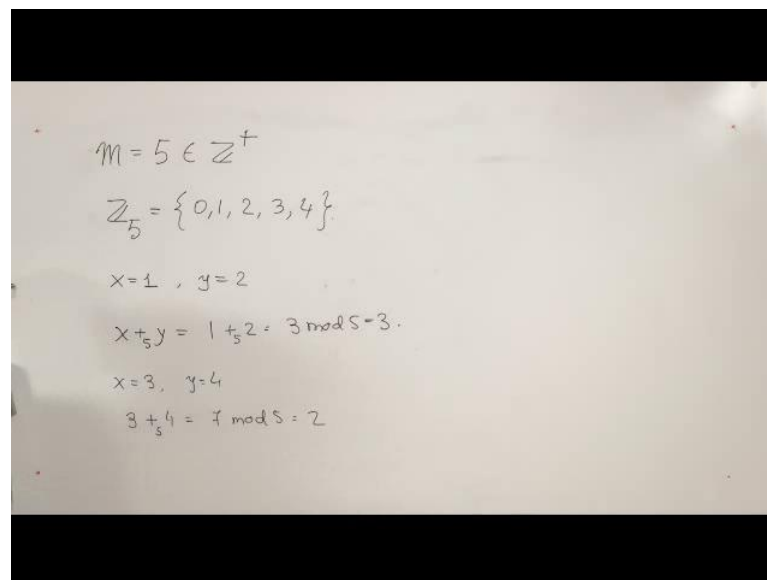 m = 5 ∈ ℤ⁺
ℤ₅ = {0,1,2,3,4}.
x=1 , y=2
x +₅ y = 1 +₅ 2 = 3 mod 5 = 3.
x = 3, y=4
3 +₅ 4 = 7 mod 5 = 2